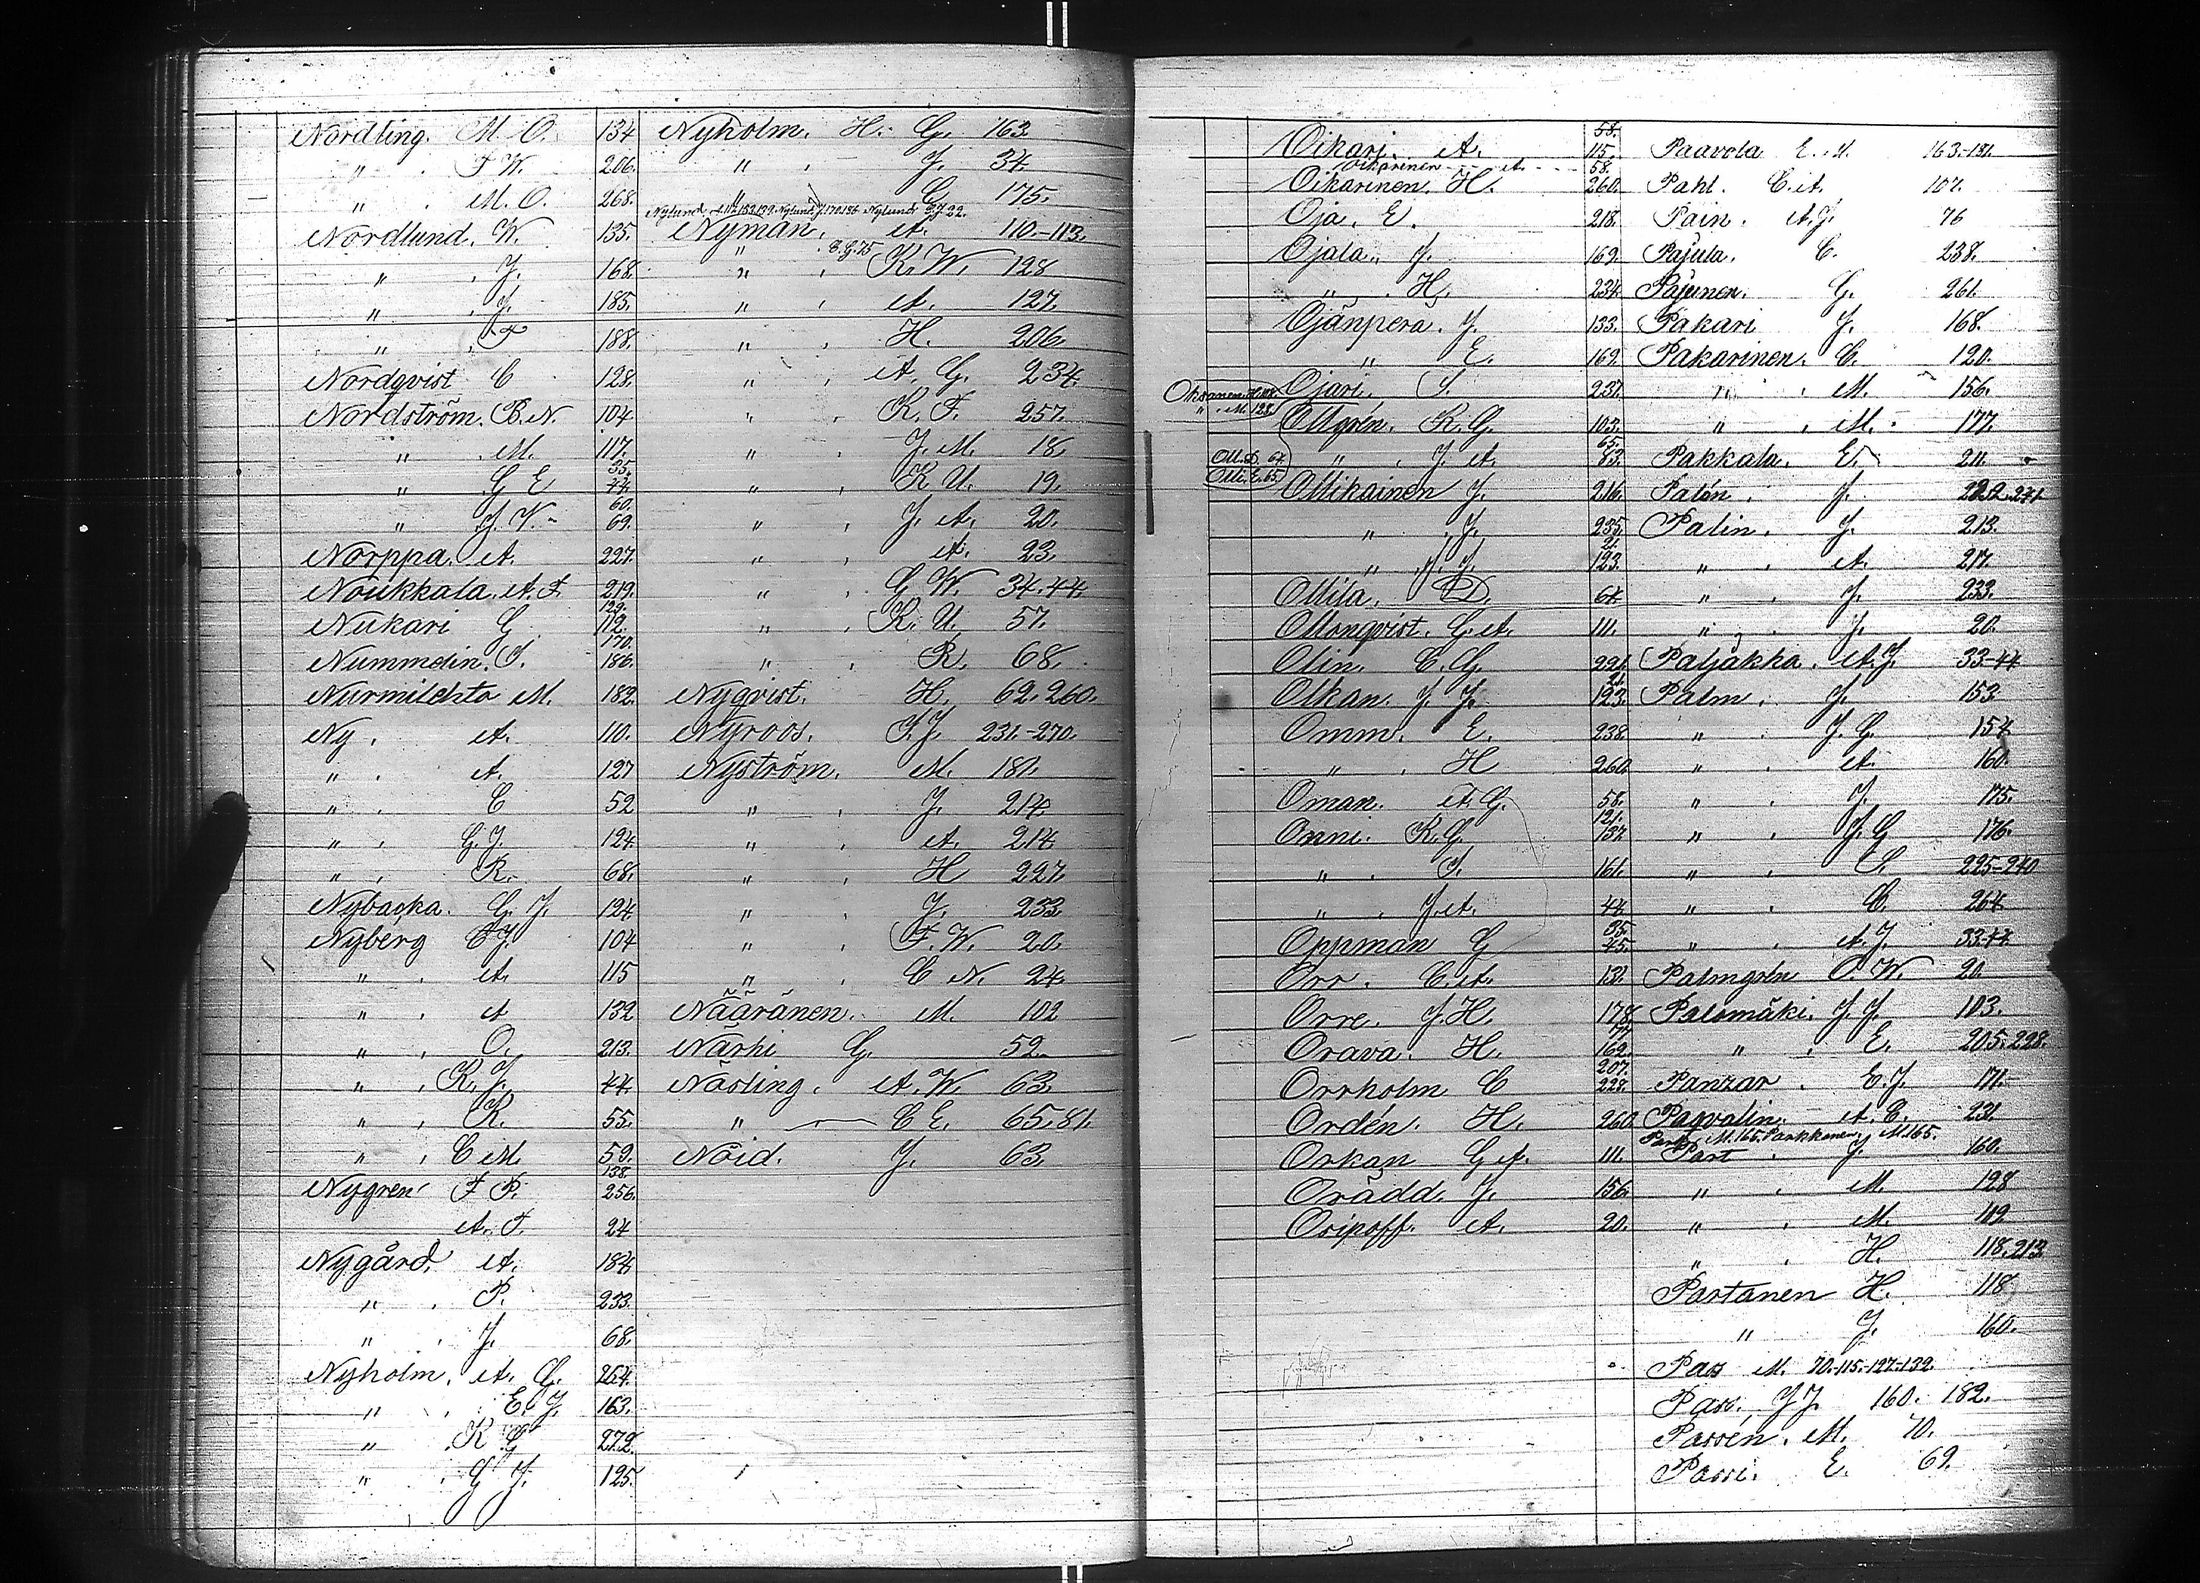 Nordling. M. O. 134
" . F W. 206.
" . M. O. 268.
Nordlund. W. 135.
" . J. 168.
" . J. 185.
" . F 188.
Nordqvist C 128.
Nordström. B. N. 104
" . M. 117.
" G E 35. 44.
" J. V. 60. 69.
Norppa. A. 227.
Noukkala. A. F. 219.
Nukari G 129. 112.
Nummelin. J. 170. 186.
Nurmilehto M. 182.
Ny . A. 110.
" . A. 127
" . C 52
" . G. J. 124
" . R. 68.
Nybacka. G. J. 124.
Nyberg C J. 104
" . A. 115
" . A 132
" . O. 213.
" . K. J. 44
" . K. 55.
" . C M. 59.
Nygren F P. 138. 256.
A. F. 24
Nygård. A. 184.
" . P. 233.
" . J. 68.
Nyholm. A. G. 264.
" . E. J. 163.
" . K G 272.
" . G J. 125.
Nyholm. H. G. 163
" . J. 34.
" C 175.
Nylund J. 170.186 Nylund E J 22.
Nyman. A. 110-113.
" . K. W. 128
" . A. 127.
" . H. 206.
" . A. G. 234.
" . K. F. 257.
" . J. M. 18.
" . K U. 19.
" . J. A. 20.
" . A. 23.
" . G W. 34.44.
" . K. U. 57.
" . R. 68.
Nyqvist. H. 62.260.
Nyroos. F. J. 231.-270.
Nyström. M. 181.
" . J. 214.
" . A. 214
" . H 227.
" . J. 233
" . F. W. 20.
" . C N. 24.
Nääränen. M. 102
Närhi G. 52.
Näsling. A. W. 63.
" C E. 65.81.
Nöid. J. 63.
Oikari A. 58. 115.
Oikarinen A. 58.
Oikarinen. H. 260.
Oja. E. 218.
Ojala. J. 169.
" . H. 234.
Ojanperä. J. 133.
" E. 169.
Ojari. S. 231.
Oksanen
" . M. 128.
Ollgrén. K. G. 103.
Oll. D. 64.
" . J. A. 65. 83.
Olli. E. 65.
Ollikainen J. 216.
" . J. 235.
" . J. J. 21. 123.
Ollila. D. 64.
Ollonqvist. G. A. 111.
Olin. C. G. 221.
Olkan. J. J. 21. 123.
Omm. E. 238
" . H 260.
Oman. A. G. 58.
Onni. K. G. 121. 137.
" . S. 161.
" . J. A. 44.
Oppman G 35. 45.
Orr. C. A. 131.
Orre. J. H. 178.
Orava. H. 162.
Orrholm C 207. 228.
Ordén. H. 260
Orkan G A. 111.
Orädd. J. 156.
Osipoff. A. 20.
Paavola E. M. 163.-181.
Pahl. C. A. 107.
Pain. A. J. 76
Pajula. C. 238.
Pajunen. G. 261.
Pakari J. 168.
Pakarinen. C. 120.
" . M. 156.
" . M. 177.
Pakkala. E. 211.
Palén. J. 222.271
Palin. J. 213.
" . A. 217.
" . J. 233.
" . J. 20.
Paljakka. A. J. 33-44
Palm. J. 153
" J. G. 154.
" . A. 160.
" . J. 175.
" . J. G 176.
" . E. 225-240
" . C. 264.
" . A. J. 33.44.
Palmgrén O. W. 20.
Palomäki. J. J. 103.
" . E. 205.228.
Panzar . E. J. 171.
Parvalin. A. E. 231.
M. 165. Parkkonen. M. 165.
Part . J. 160.
" . M. 128
" . M. 119.
" . H. 118.213
Partanen H. 118
" J. 160.
Pas M. 70.-115.-127.-132.
Pas. J J. 160. 182.
Passén. M. 70.
Passi. E. 69.